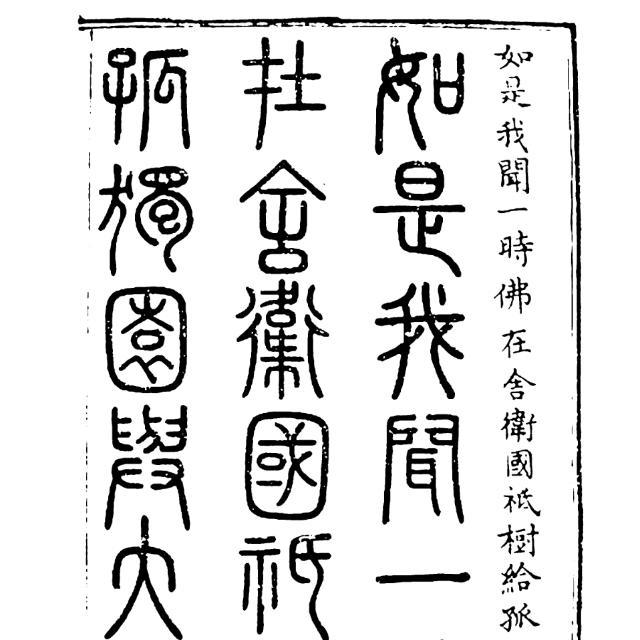 如是我聞一時佛在舍衛國祇樹給孤
如是我聞一
在舍衛國祇
孤獨園與大